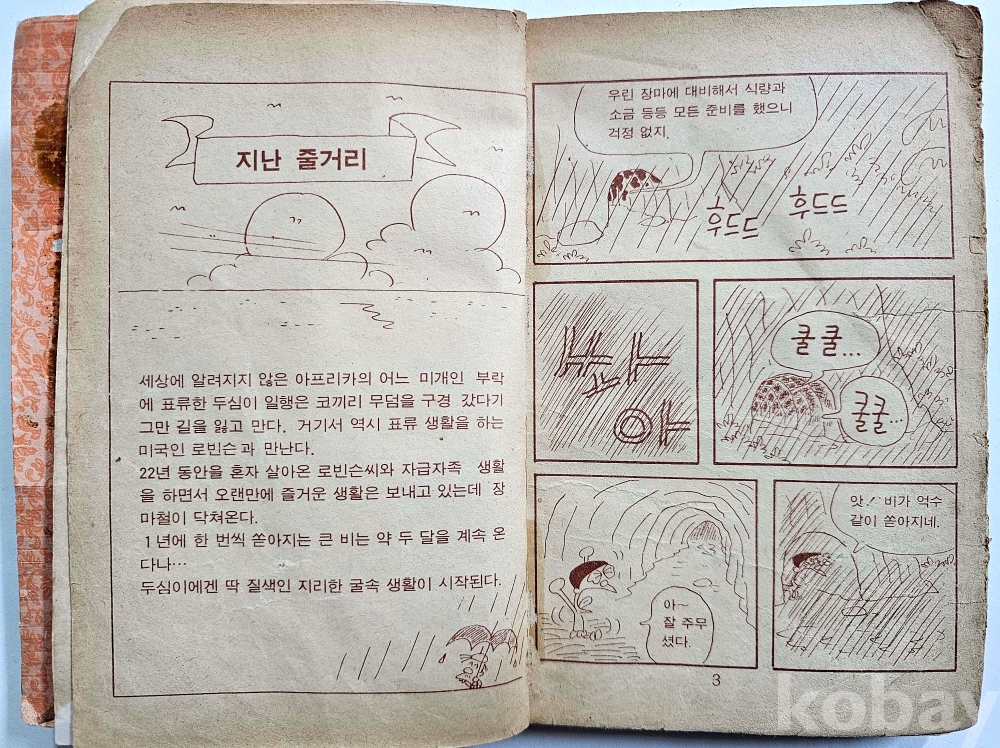 지난 줄거리
세상에 알려지지 않은 아프리카의 어느 미개인 부락
에 표류한 두심이 일행은 코끼리 무덤을 구경 갔다가
그만 길을 잃고 만다. 거기서 역시 표류 생활을 하는
미국인 로빈슨과 만난다.
22년 동안을 혼자 살아온 로빈슨씨와 자급자족 생활
을 하면서 오랜만에 즐거운 생활은 보내고 있는데 장
마철이 닥쳐온다.
1년에 한 번씩 쏟아지는 큰 비는 약 두 달을 계속 온
다나…
두심이에겐 딱 질색인 지리한 굴속 생활이 시작된다.
우린 장마에 대비해서 식량과
소금 등등 모든 준비를 했으니
걱정 없지.
후드드
후드드
쿨쿨...
쿨쿨...
아~
잘 주무
셨다.
앗! 비가 억수
같이 쏟아지네.
3
kobay